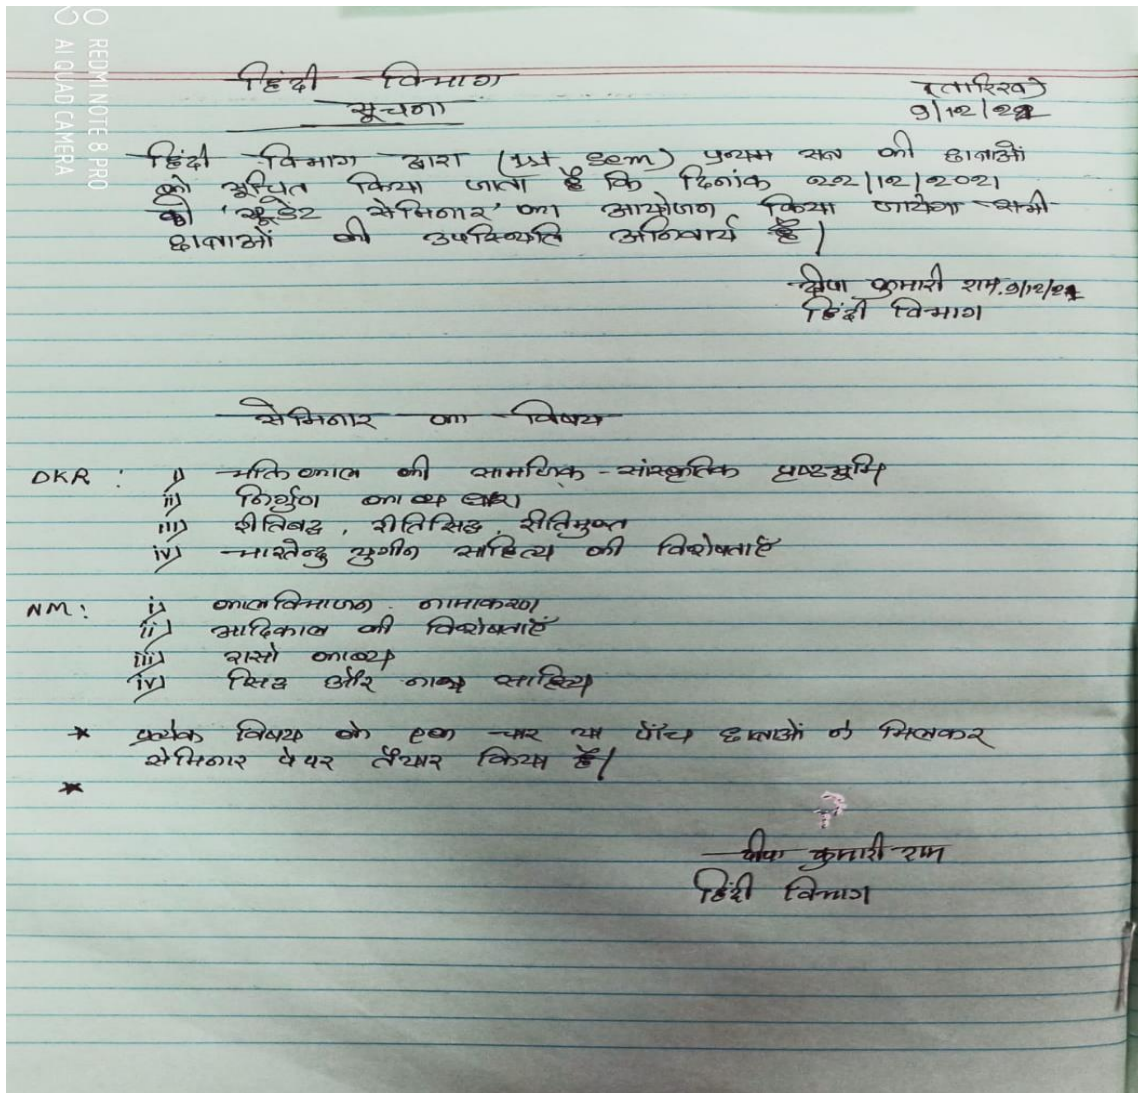 REDMI NOTE 8 PRO
AI QUAD CAMERA
हिंदी विभाग
सूचना
(तारिख)
9/12/21
हिंदी विभाग द्वारा (1st sem) प्रथम सत्र की छात्राओं
को सूचित किया जाता है कि दिनांक 22/12/2021
को 'स्टूडेंट सेमिनार' का आयोजन किया जायेगा सभी
छात्राओं की उपस्थिति अनिवार्य है।
दीपा कुमारी राम. 9/12/21
हिंदी विभाग
सेमिनार का विषय
DKR : i) भक्तिकाल की सामाजिक-सांस्कृतिक पृष्ठभूमि
ii) निर्गुण काव्य धारा
iii) रीतिबद्ध, रीतिसिद्ध, रीतिमुक्त
iv) भारतेन्दु युगीन साहित्य की विशेषताएँ
NM : i) कालविभाजन. नामाकरण
ii) आदिकाल की विशेषताएँ
iii) रासो काव्य
iv) सिद्ध और नाथ साहित्य
* प्रत्येक विषय को एक चार या पाँच छात्राओं ने मिलकर
सेमिनार पेपर तैयार किया है।
*
दीपा कुमारी राम
हिंदी विभाग